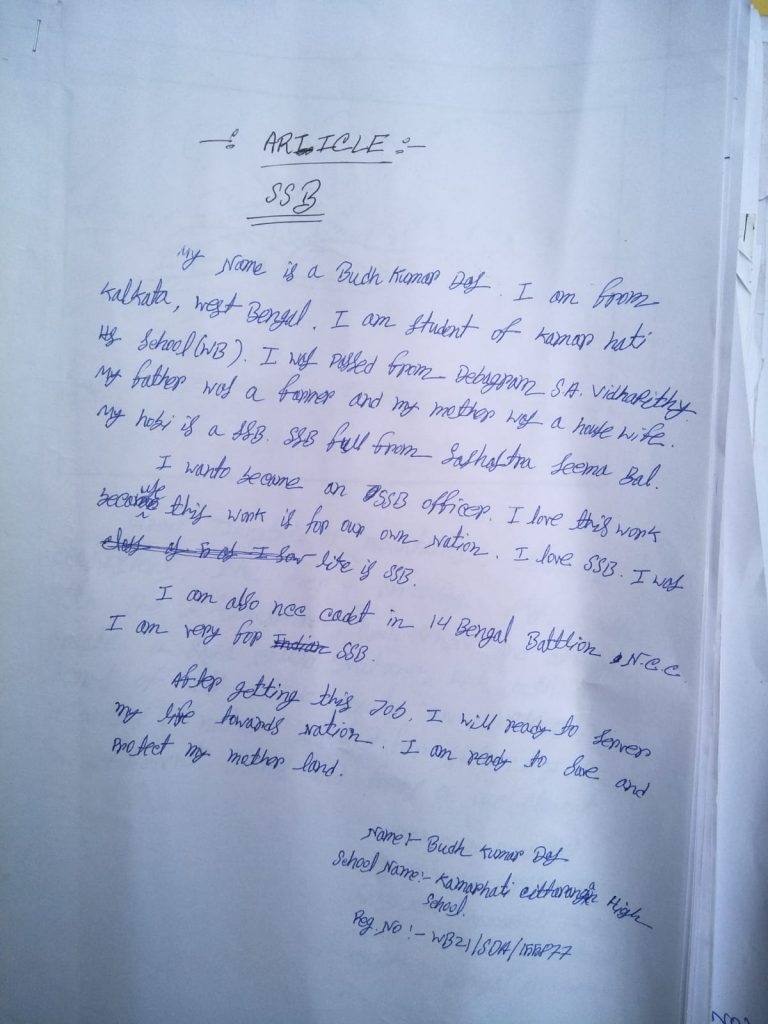 -: ARTICLE :-
SSB
My Name is a Budh Kumar Das. I am from
Kalkata, West Bengal. I am student of Kamar hati
Hg School (WB). I was Passed from Debagram S.A. Vidhapithy.
My father was a farmer and my mother was a house wife.
My hobi is a SSB. SSB full from Sashastra Seema Bal.
I wanto become an SSB officer. I love this work
because this work is for our own Nation. I love SSB. I was
like is SSB.
I am also ncc cadet in 14 Bengal Battlion N.C.C
I am very for SSB.
After getting this Job, I will ready to server
my life towards Nation. I am ready to save and
Protect my mother land.
Name:- Budh Kumar Das
School Name:- Kamarhati High
School.
Reg. No :- WB21/SDA/